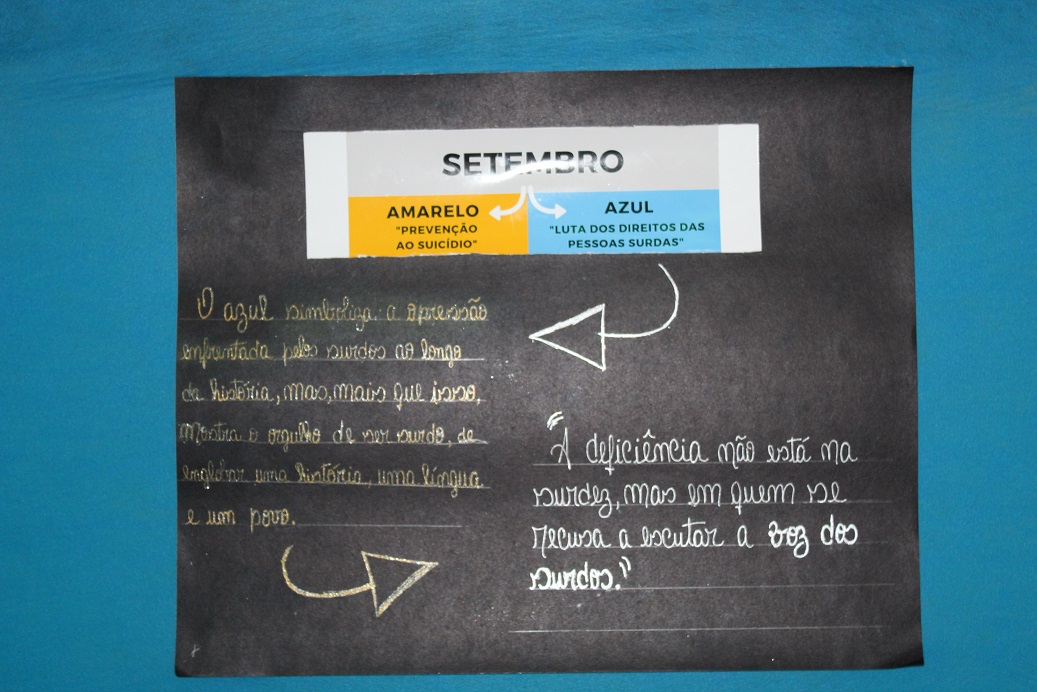 SETEMBRO
AMARELO
"PREVENÇÃO
AO SUICÍDIO"
AZUL
"LUTA DOS DIREITOS DAS
PESSOAS SURDAS"
O azul simboliza a opressão
enfrentada pelos surdos ao longo
da história, mas, mais que isso,
mostra o orgulho de ser surdo, de
englobar uma história, uma língua
e um povo.
"A deficiência não está na
surdez, mas em quem se
recusa a escutar a voz dos
surdos."